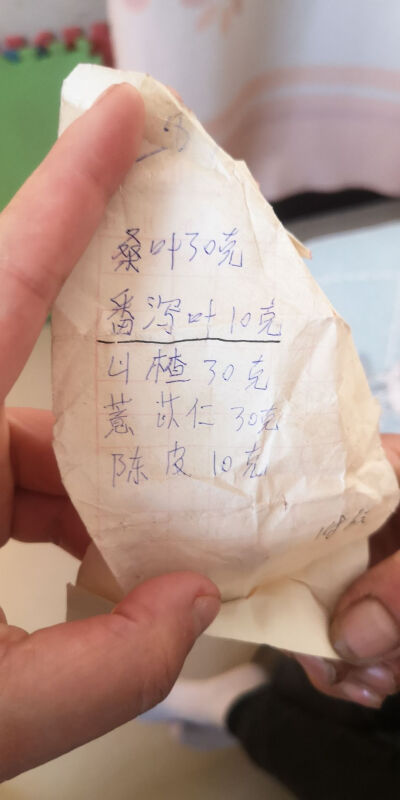 桑叶30克
番泻叶10克
山楂30克
薏苡仁30克
陈皮10克